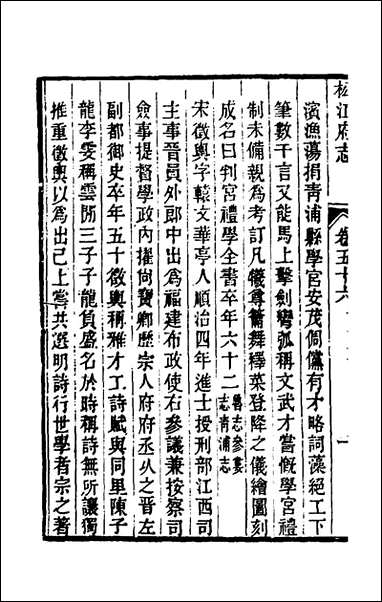 松江府志 卷五十六 一
濱漁蕩捐青浦縣學宮安茂倜儻有才略詞藻絕工下
筆數千言又能馬上擊劍彎弧稱文武才嘗慨學宮禮
制未備親爲考訂凡犧尊籥舞釋菜登降之儀繪圖刻
成名曰判宮禮學全書卒年六十二 舊志參婁
志青浦志
宋徵輿字轅文華亭人順治四年進士授刑部江西司
主事晉員外郎中出爲福建布政使右參議兼按察司
僉事提督學政內擢尚寶卿歷宗人府府丞久之晉左
副都御史卒年五十徵輿稱雅才工詩賦與同里陳子
龍李雯稱雲閒三子子龍負盛名於時稱詩無所讓獨
推重徵輿以爲出己上嘗共選明詩行世學者宗之著